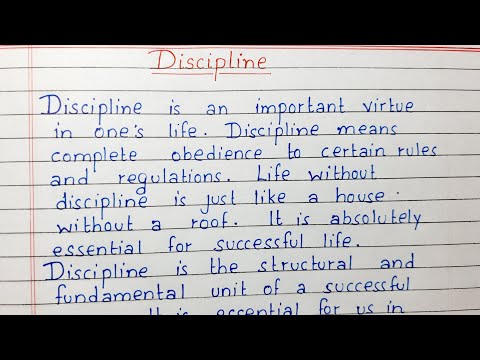 Discipline
Discipline is an important virtue
in one's life. Discipline means
complete obedience to certain rules
and regulations. Life without
discipline is just like a house.
without a roof. It is absolutely
essential for successful life.
Discipline is the structural and
fundamental unit of a successful
It is essential for us in